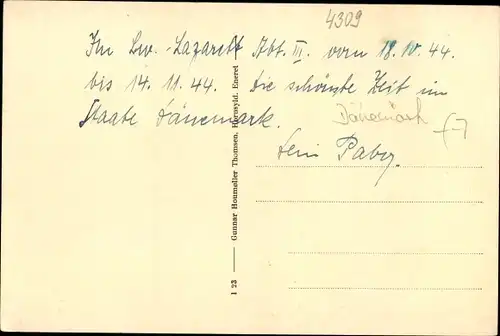 4309
Im Lw.-Lazarett Abt. III. vom 18.10.44.
bis 14.11.44. Die schönste Zeit im
Staate Dänemark.
Dänemark
Dein
Gunnar Houmøller Thomsen, Hornsyld. Eneret
1 23